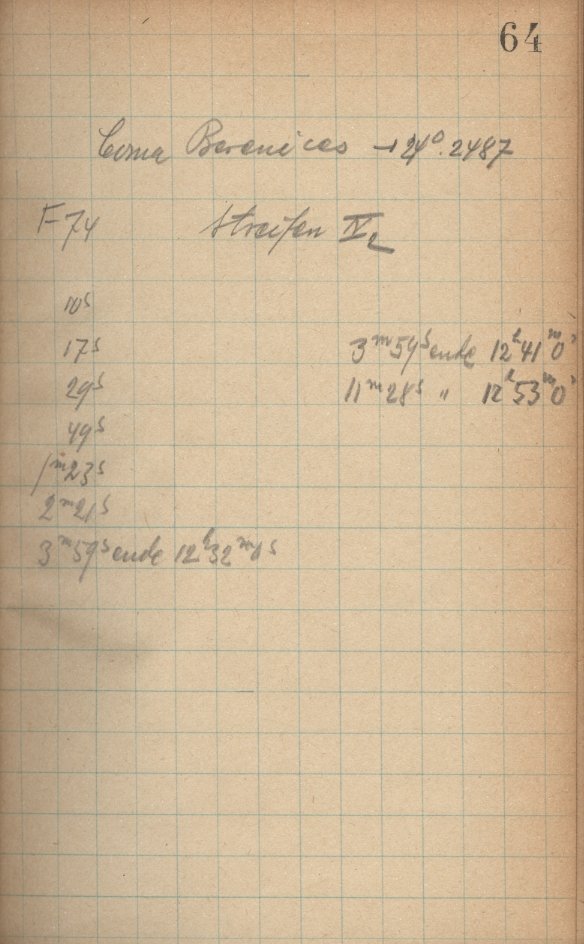 64
Coma Berenices +24°.2487
F 74 Streifen IV2
10s
17s 3m59s ende 12h41m0s
29s 11m28s " 12h53m0s
49s
1m23s
2m21s
3m59s ende 12h32m0s